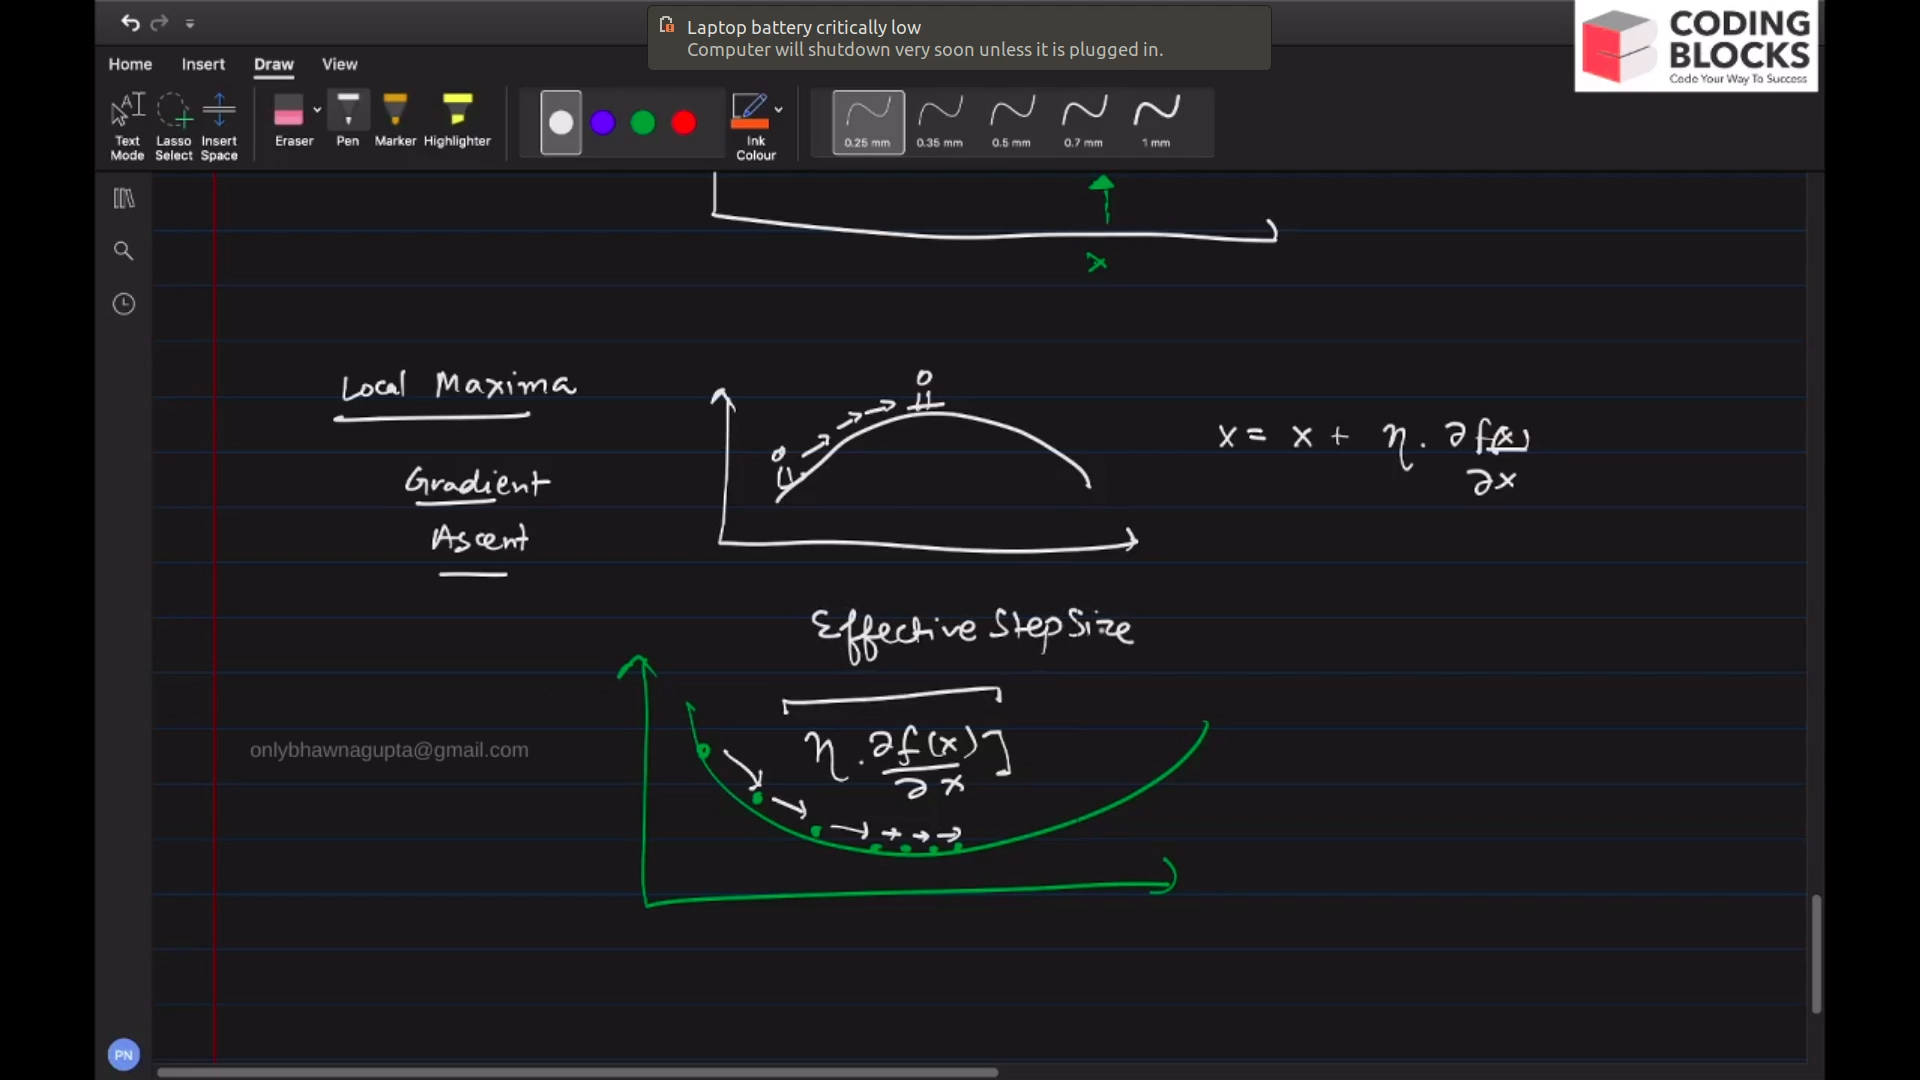 Laptop battery critically low
Computer will shutdown very soon unless it is plugged in.
CODING
BLOCKS
Code Your Way To Success
Home Insert Draw View
Text Mode
Lasso Select
Insert Space
Eraser
Pen
Marker
Highlighter
Ink Colour
0.25 mm
0.35 mm
0.5 mm
0.7 mm
1 mm
x
Local Maxima
Gradient
Ascent
x = x + η . ∂f(x)
∂x
Effective Step Size
η . ∂f(x) ]
∂x
onlybhawnagupta@gmail.com
PN